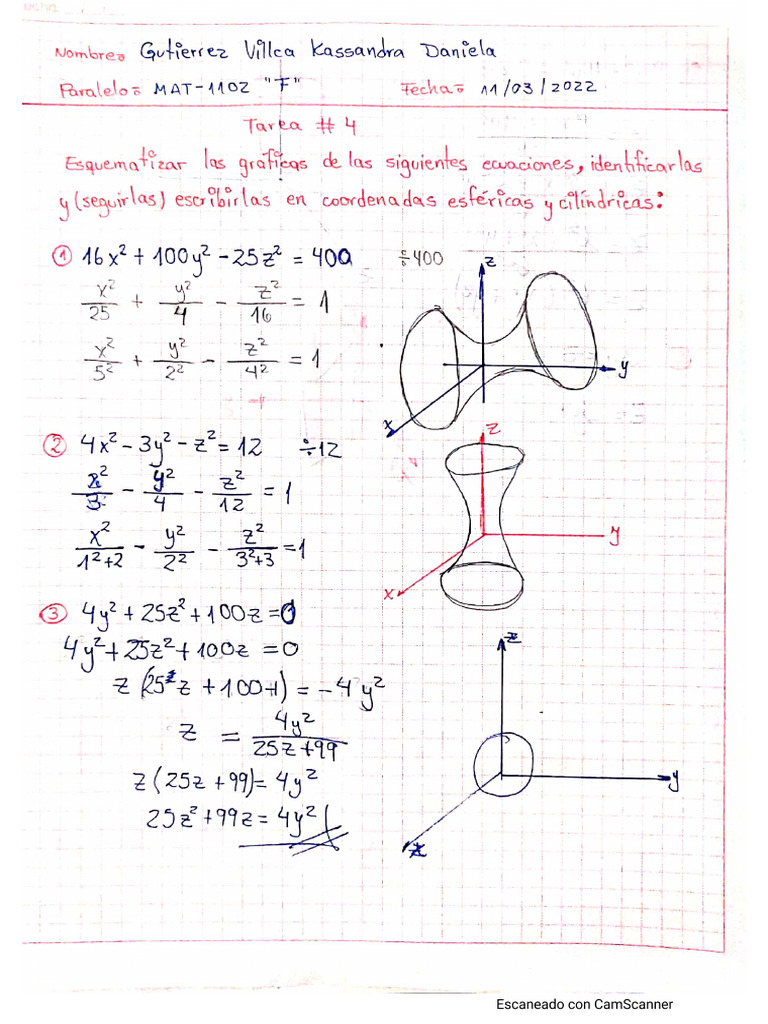 Nombre: Gutierrez Villca Kassandra Daniela
Paralelo: MAT-1102 "F" Fecha: 11/03/2022
Tarea # 4
Esquematizar las gráficas de las siguientes ecuaciones, identificarlas
y (seguirlas) escribirlas en coordenadas esféricas y cilíndricas:
① 16x² + 100y² - 25z² = 400 ÷400
x²/25 + y²/4 - z²/16 = 1
x²/5² + y²/2² - z²/4² = 1
z
y
x
② 4x² - 3y² - z² = 12 ÷12
x²/3 - y²/4 - z²/12 = 1
x²/1²+2 - y²/2² - z²/3²+3 = 1
z
y
x
③ 4y² + 25z² + 100z = 0
4y² + 25z² + 100z = 0
z (25z + 100-1) = -4y²
z = 4y²/25z+99
z (25z + 99) = 4y²
25z² + 99z = 4y²
z
y
Escaneado con CamScanner